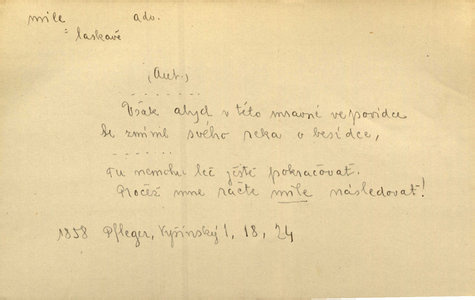 mile adv.
= laskavě
(Aut.)
. . . . . . .
Však abyd v této mravné vepovídce
se zmínil svého reka o besídce,
. . . . . . .
Tu nemohu leč ještě pokračovat.
Pročež mne račte mile následovat!
1858 Pfleger, Vyšínský 1, 18, 24